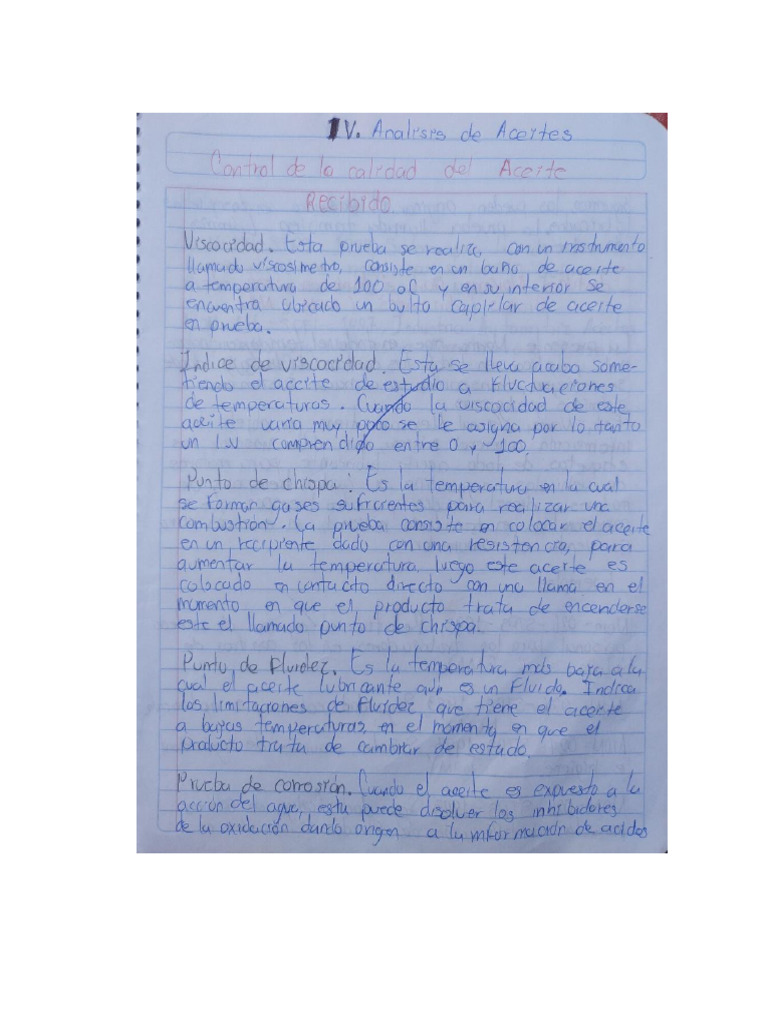 IV. Analisis de Aceites
Control de la calidad del Aceite
Recibido
Viscocidad. Esta prueba se realiza con un instrumento
llamado viscosimetro, consiste en un baño de aceite
a temperatura de 100 oF y en su interior se
encuentra ubicado un bulto capilar de aceite
en prueba.
Indice de viscocidad. Esta se lleva acabo some-
tiendo el aceite de estudio a fluctuaciones
de temperaturas. Cuando la viscocidad de este
aceite varia muy poco se le asigna por lo tanto
un I.V comprendido entre 0 y 100.
Punto de chispa: Es la temperatura en la cual
se forman gases suficientes para realizar una
combustión. La prueba consiste en colocar el aceite
en un recipiente dado con una resistencia, para
aumentar la temperatura, luego este aceite es
colocado en contacto directo con una llama en el
momento en que el producto trata de encenderse
este el llamado punto de chispa.
Punto de fluidez. Es la temperatura más baja a la
cual el aceite lubricante aún es un fluido. Indica
las limitaciones de fluidez que tiene el aceite
a bajas temperaturas, en el momento en que el
producto trata de cambiar de estado.
Prueba de corrosión. Cuando el aceite es expuesto a la
acción del agua, esta puede disolver los inhibidores
de la oxidación dando origen a la información de acidos